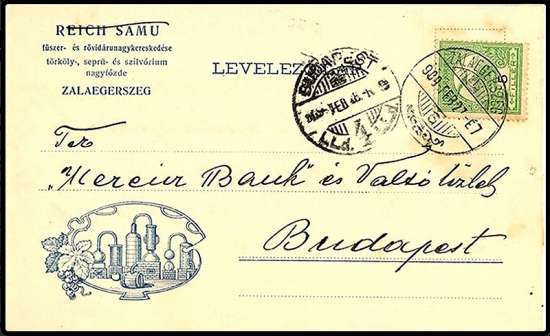 REICH SAMU
fűszer- és rövidárunagykereskedése
törköly-, seprű- és szilvórium
nagyfőzde
ZALAEGERSZEG
LEVELEZ
BUDAPEST
ZALAEGERSZEG
"Mercur Bank" és Váltó üzlet
Budapest